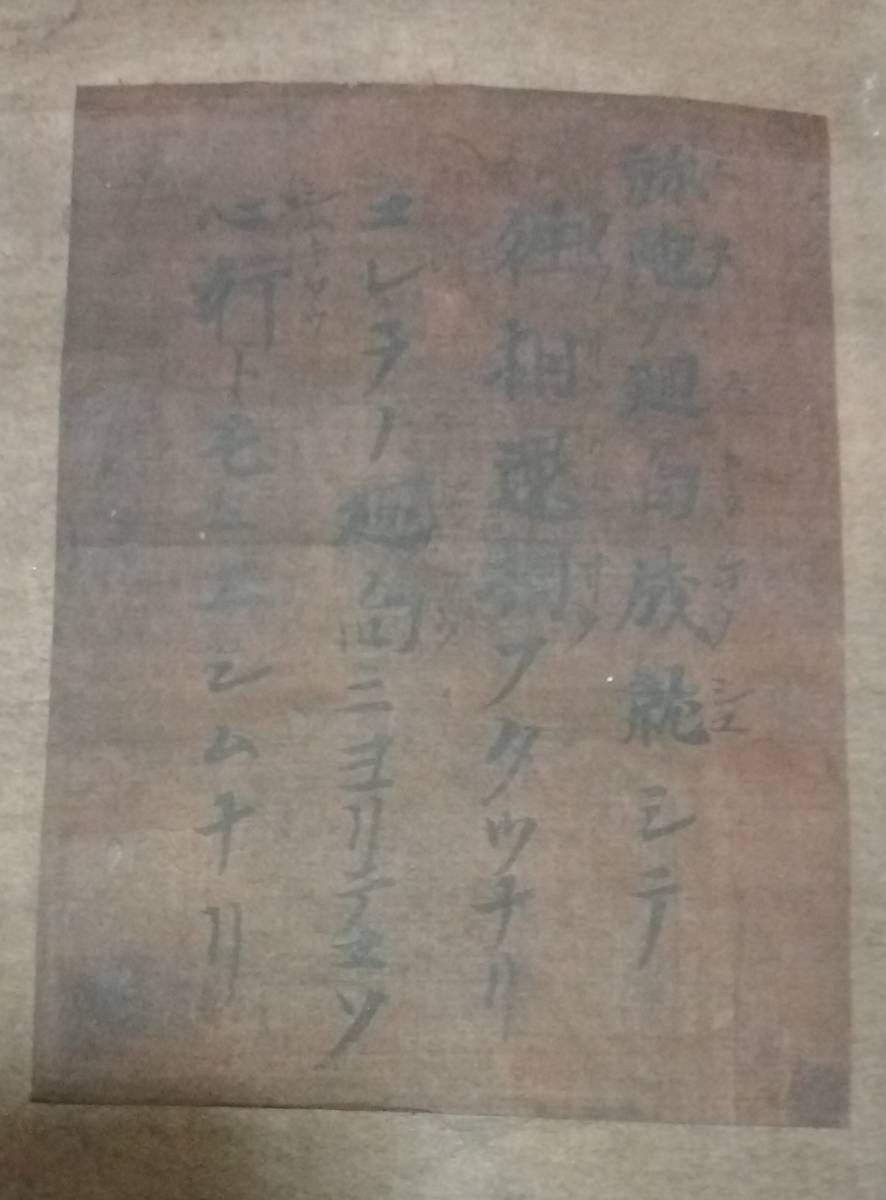 弥陀ノ廻向成就シテ
往相還相フタツナリ
コレラノ廻向ニヨリテコソ
心行トモニエシムナリ